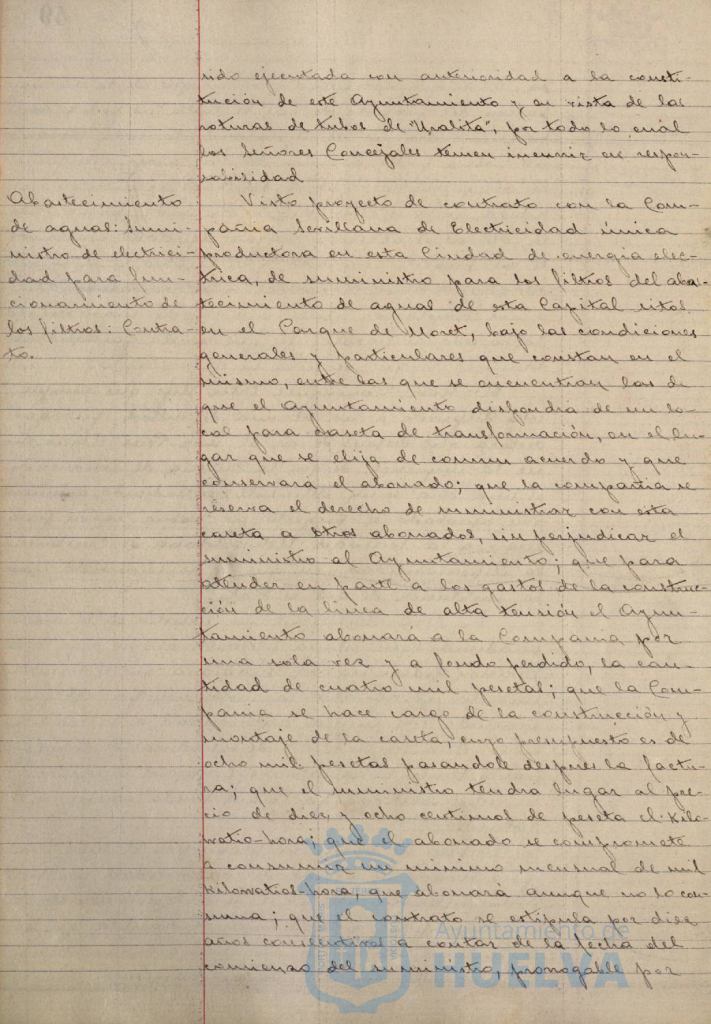 sido ejecutada con anterioridad a la consti-
tución de este Ayuntamiento y en vista de las
roturas de tubos de "Uralita", por todo lo cual
los Señores Concejales temen incurrir en respon-
sabilidad
Abastecimiento
de aguas: Sumi-
nistro de electrici-
dad para fun-
cionamiento de
los filtros: Contra-
to.
Visto proyecto de contrato con la Com-
pañia Sevillana de Electricidad única
productora en esta Ciudad de energia elec-
trica, de suministro para los filtros del abas-
tecimiento de aguas de esta Capital sitos
en el Parque de Moret, bajo las condiciones
generales y particulares que constan en el
mismo, entre las que se encuentran las de
que el Ayuntamiento dispondra de un lo-
cal para caseta de transformación, en el lu-
gar que se elija de comun acuerdo y que
conservará el abonado; que la compañia se
reserva el derecho de suministrar con esta
caseta a otros abonados, sin perjudicar el
suministro al Ayuntamiento; que para
atender en parte a los gastos de la construc-
ción de la linea de alta tensión el Ayun-
tamiento abonará a la Compañia por
una sola vez y a fondo perdido, la can-
tidad de cuatro mil pesetas; que la Com-
pañia se hace cargo de la construcción y
montaje de la caseta, cuyo presupuesto es de
ocho mil pesetas pasandole despues la factu-
ra; que el suministro tendra lugar al pre-
cio de diez y ocho centimos de peseta el kilo-
watio-hora; que el abonado se compromete
a consumir un minimo mensual de mil
kilowatios-hora, que abonará aunque no lo con-
suma; que el contrato se estipula por diez
años consecutivos a contar de la fecha del
comienzo del suministro, prorrogable por
Ayuntamiento de
HUELVA